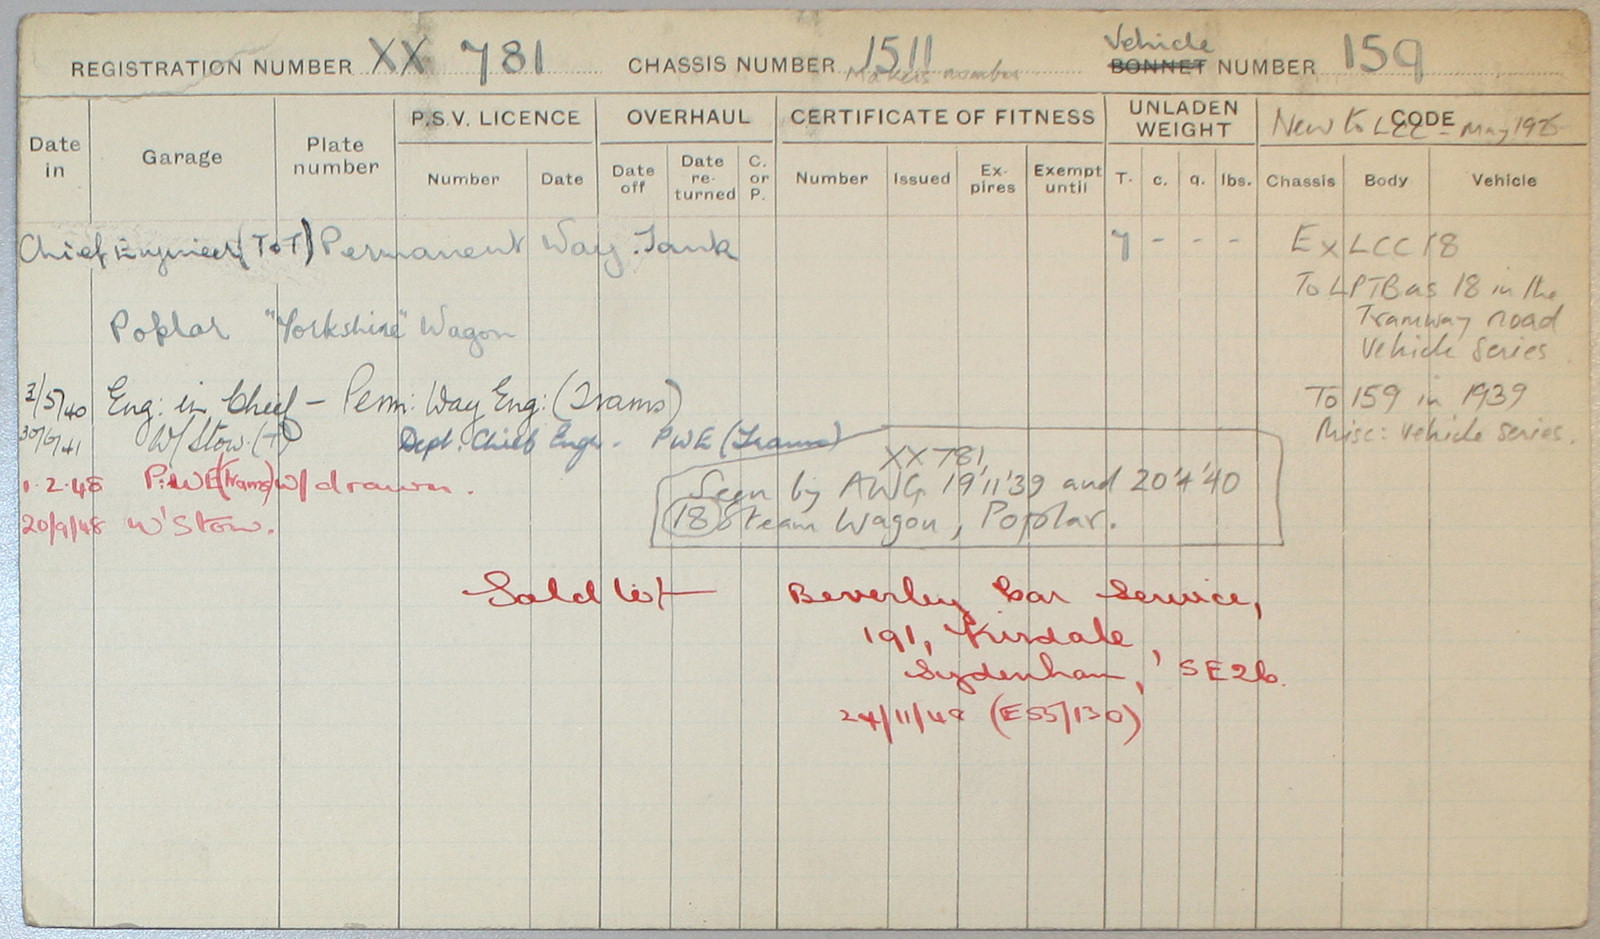 REGISTRATION NUMBER XX 781 CHASSIS NUMBER 1511 Vehicle BONNET NUMBER 159
Makers number
Date in Garage Plate number P.S.V. LICENCE OVERHAUL CERTIFICATE OF FITNESS UNLADEN WEIGHT CODE
New to LCC - May 1925
Number Date Date off Date re-turned C. or P. Number Issued Ex-pires Exempt until T. c. q. lbs. Chassis Body Vehicle
Chief Engineer (ToT) Permanent Way. Tank 7 - - - Ex LCC 18
To LPTB as 18 in the
Tramway road
Vehicle series.
Poplar "Yorkshire" Wagon
3/5/40 Eng: in Chief - Perm: Way Eng: (Trams) To 159 in 1939
30/6/41 W/Stow. (T) Dept. Chief Engr. PWE (Trams) Misc: vehicle series.
1.2.48 P.WE (Trams) w/drawn.
20/9/48 W'Stow.
XX 781
Seen by AWG 19'11'39 and 20'4'40
18 Steam Wagon, Poplar.
Sold to Beverley Car Service,
191, Kirkdale,
Sydenham, SE26.
24/11/48 (ES5/130)